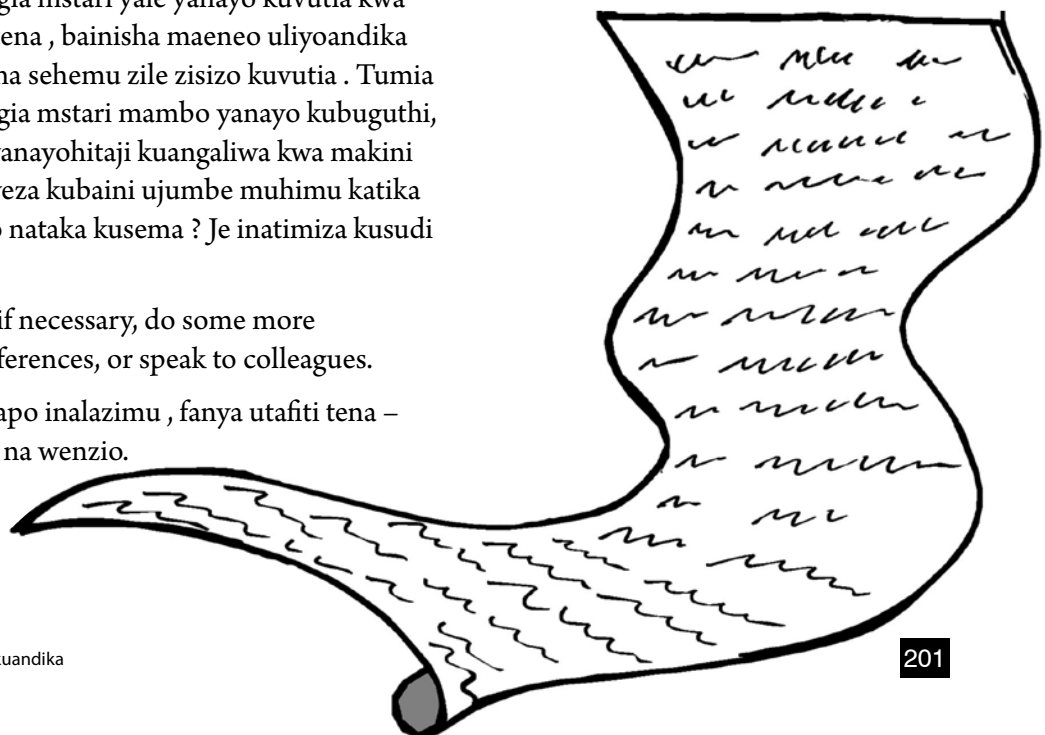 gia mstari yale yanayo kuvutia kwa
ena , bainisha maeneo uliyoandika
na sehemu zile zisizo kuvutia . Tumia
gia mstari mambo yanayo kubuguthi,
yanayohitaji kuangaliwa kwa makini
weza kubaini ujumbe muhimu katika
o nataka kusema ? Je inatimiza kusudi
if necessary, do some more
ferences, or speak to colleagues.
apo inalazimu , fanya utafiti tena –
na wenzio.
kuandika
201